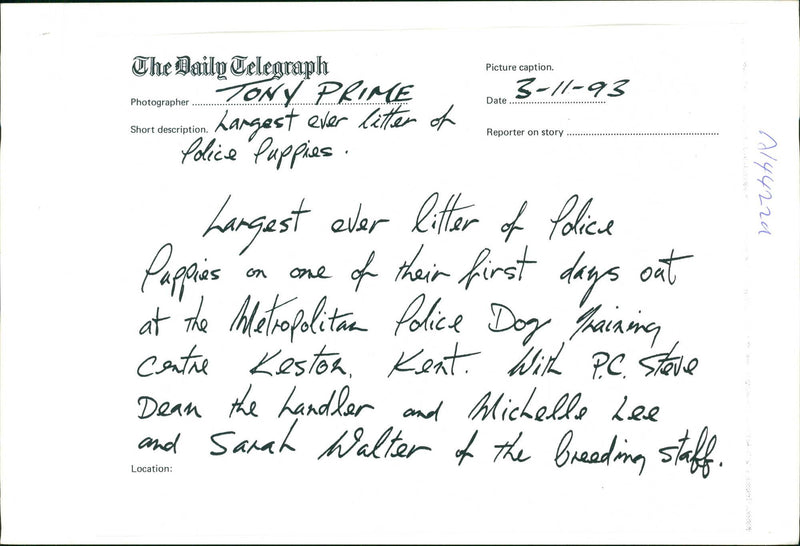 The Daily Telegraph
Picture caption.
Photographer TONY PRIME
Date 3-11-93
Short description. Largest ever litter of
Police Puppies.
Reporter on story
Largest ever litter of Police
Puppies on one of their first days out
at the Metropolitan Police Dog Training
Centre Keston, Kent. With P.C. Steve
Dean the handler and Michelle Lee
and Sarah Walter of the breeding staff.
Location:
A14422d